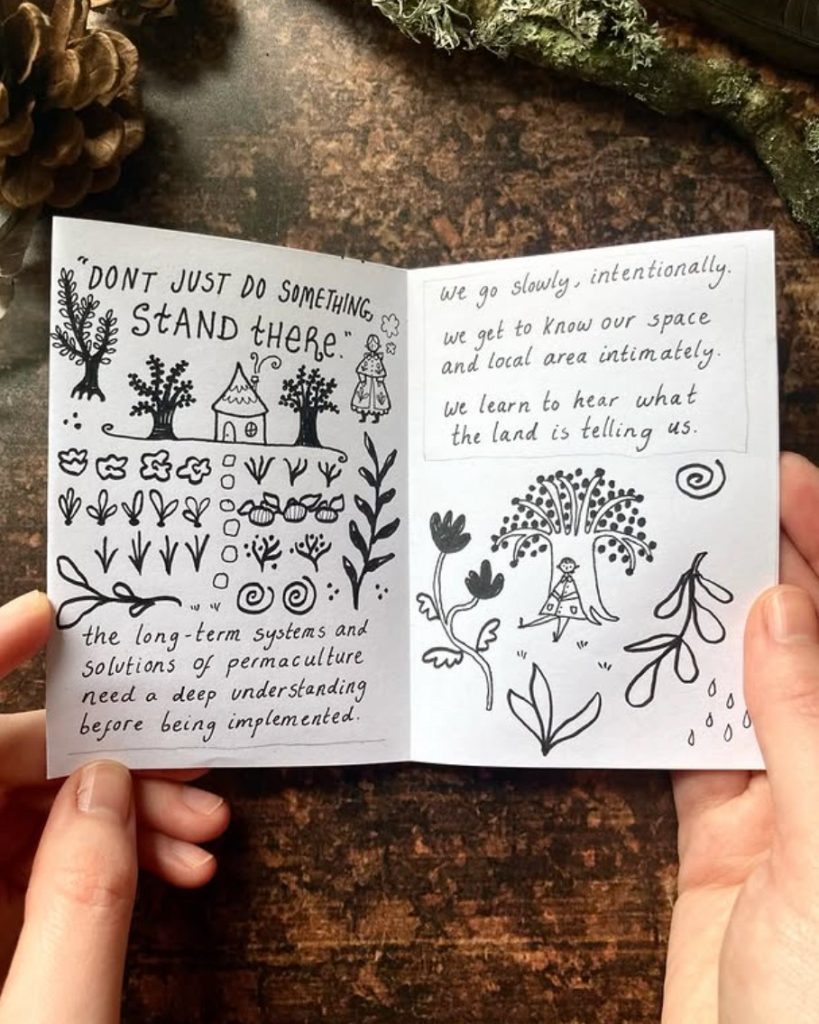 "DONT JUST DO SOMETHING,
StAND tHERE."
the long-term systems and
solutions of permaculture
need a deep understanding
before being implemented.
we go slowly, intentionally.
we get to know our space
and local area intimately.
we learn to hear what
the land is telling us.